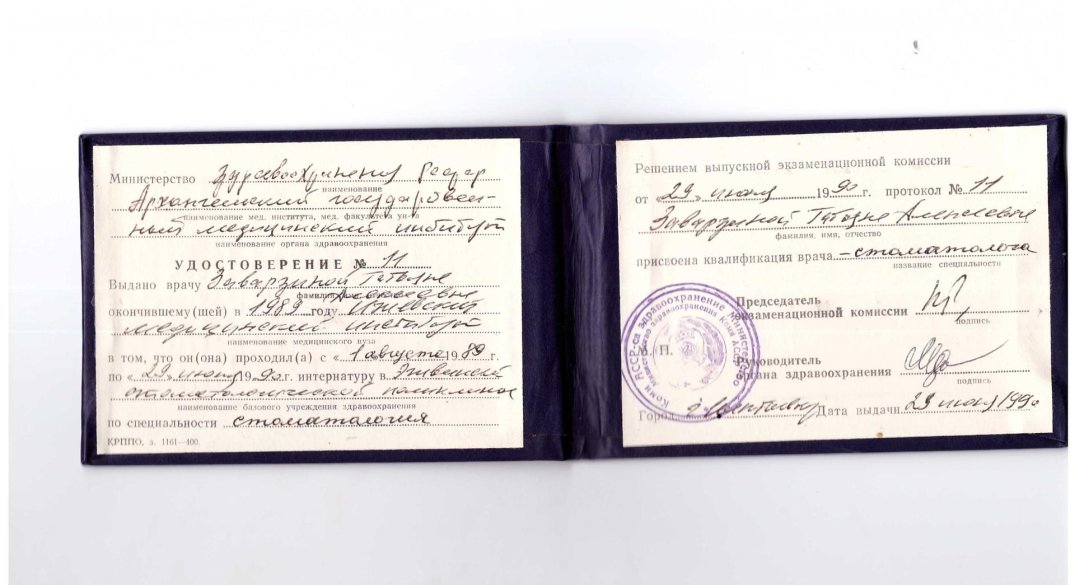 Министерство Здравоохранения РСФСР
наименование
Архангельский государствен-
наименование мед. института, мед. факультета ун-та
ный медицинский институт
наименование органа здравоохранения
УДОСТОВЕРЕНИЕ № 11
Выдано врачу Заварзиной Татьяне
Алексеевне
окончившему(шей) в 1989 году
медицинский институт
наименование медицинского вуза
в том, что он(она) проходил(а) с «1 августа 1989 г.
по «29» июня 1990 г. интернатуру в
стоматологической поликлинике
наименование базового учреждения здравоохранения
по специальности стоматология
КРППО, з. 1161—400.
Решением выпускной экзаменационной комиссии
от «29» июня 1990 г. протокол № 11
Заварзиной Татьяне Алексеевне
фамилия, имя, отчество
присвоена квалификация врача – стоматолога
название специальности
Председатель
экзаменационной комиссии
подпись
М. П.
Руководитель
органа здравоохранения
подпись
Город г. Сыктывкар Дата выдачи 29 июня 1990
Министерство здравоохранения Коми АССР